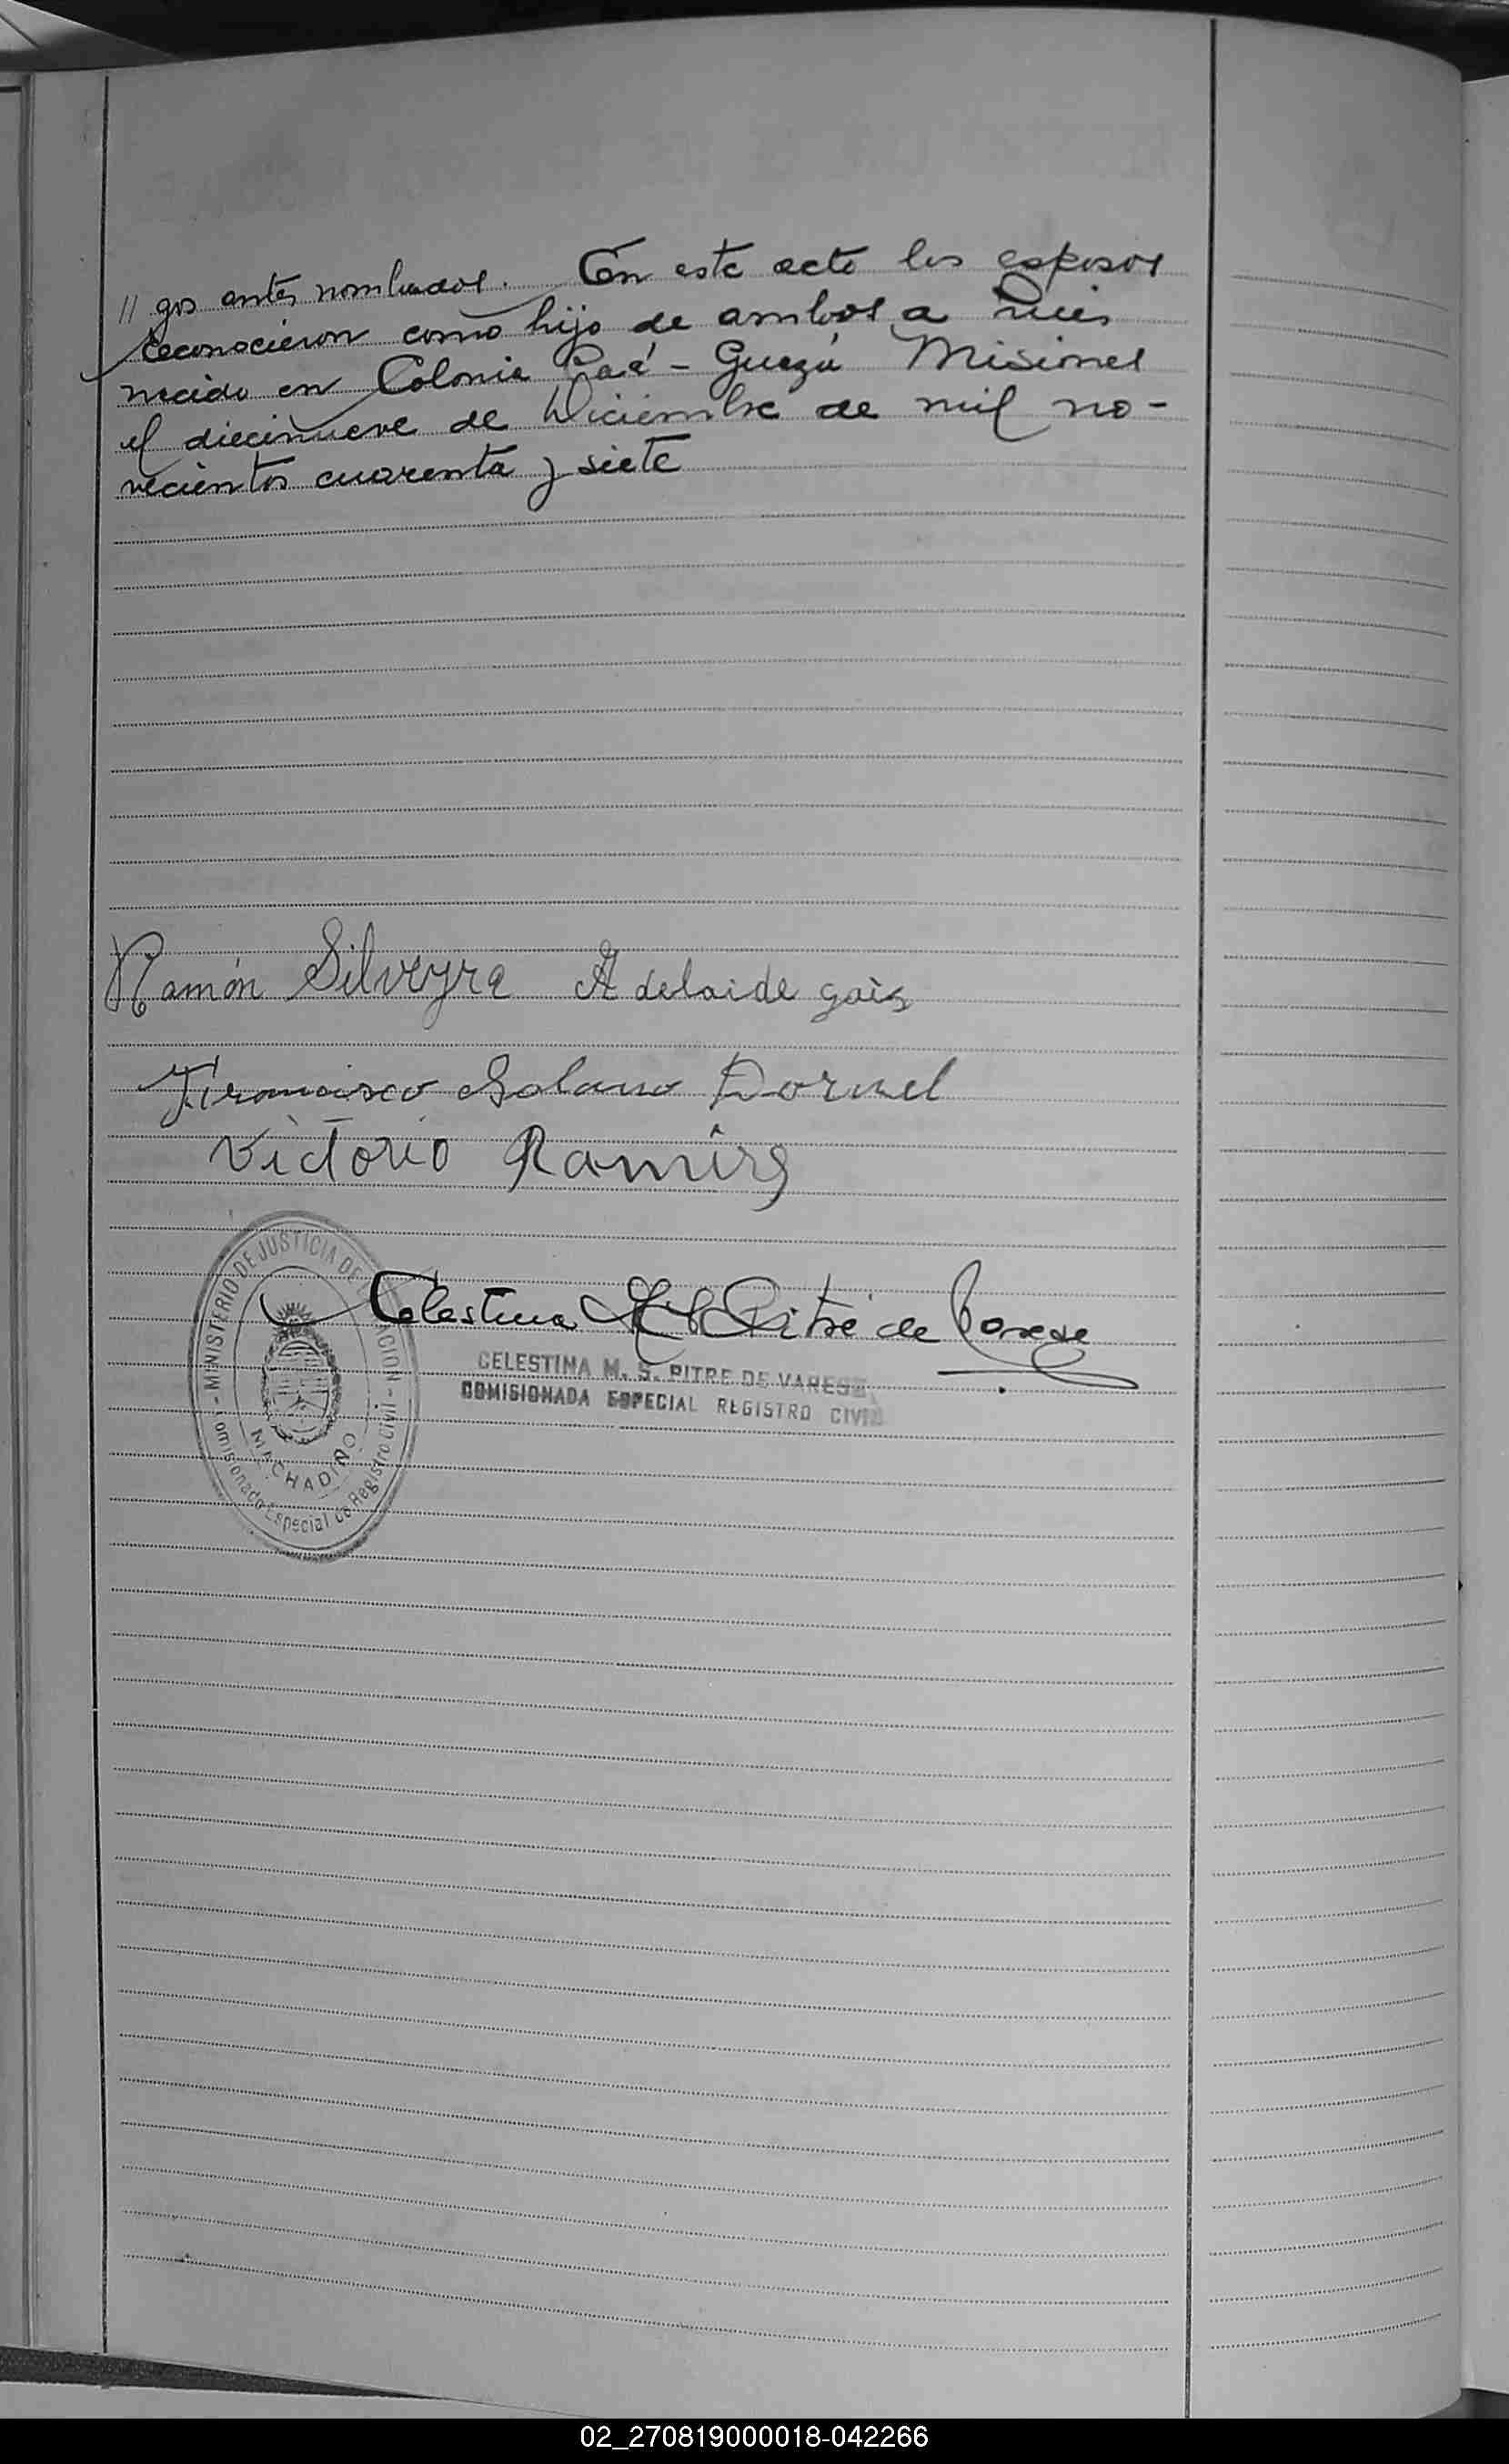 // gos antes nombrados. En este acto los esposos
reconocieron como hijo de ambos a Luis
nacido en Colonia Paá-Guazú Misiones
el diecinueve de Diciembre de mil no-
vecientos cuarenta y siete
Ramón Silveyra Adelaide gais
Francisco Solano Dornel
Victorio Ramirs
Celestina M. S. Pitré de Varese
CELESTINA M. S. PITRE DE VARESE
COMISIONADA ESPECIAL REGISTRO CIVIL
MINISTERIO DE JUSTICIA DE
MACHADINO
Comisionado Especial de Registro Civil
02_270819000018-042266